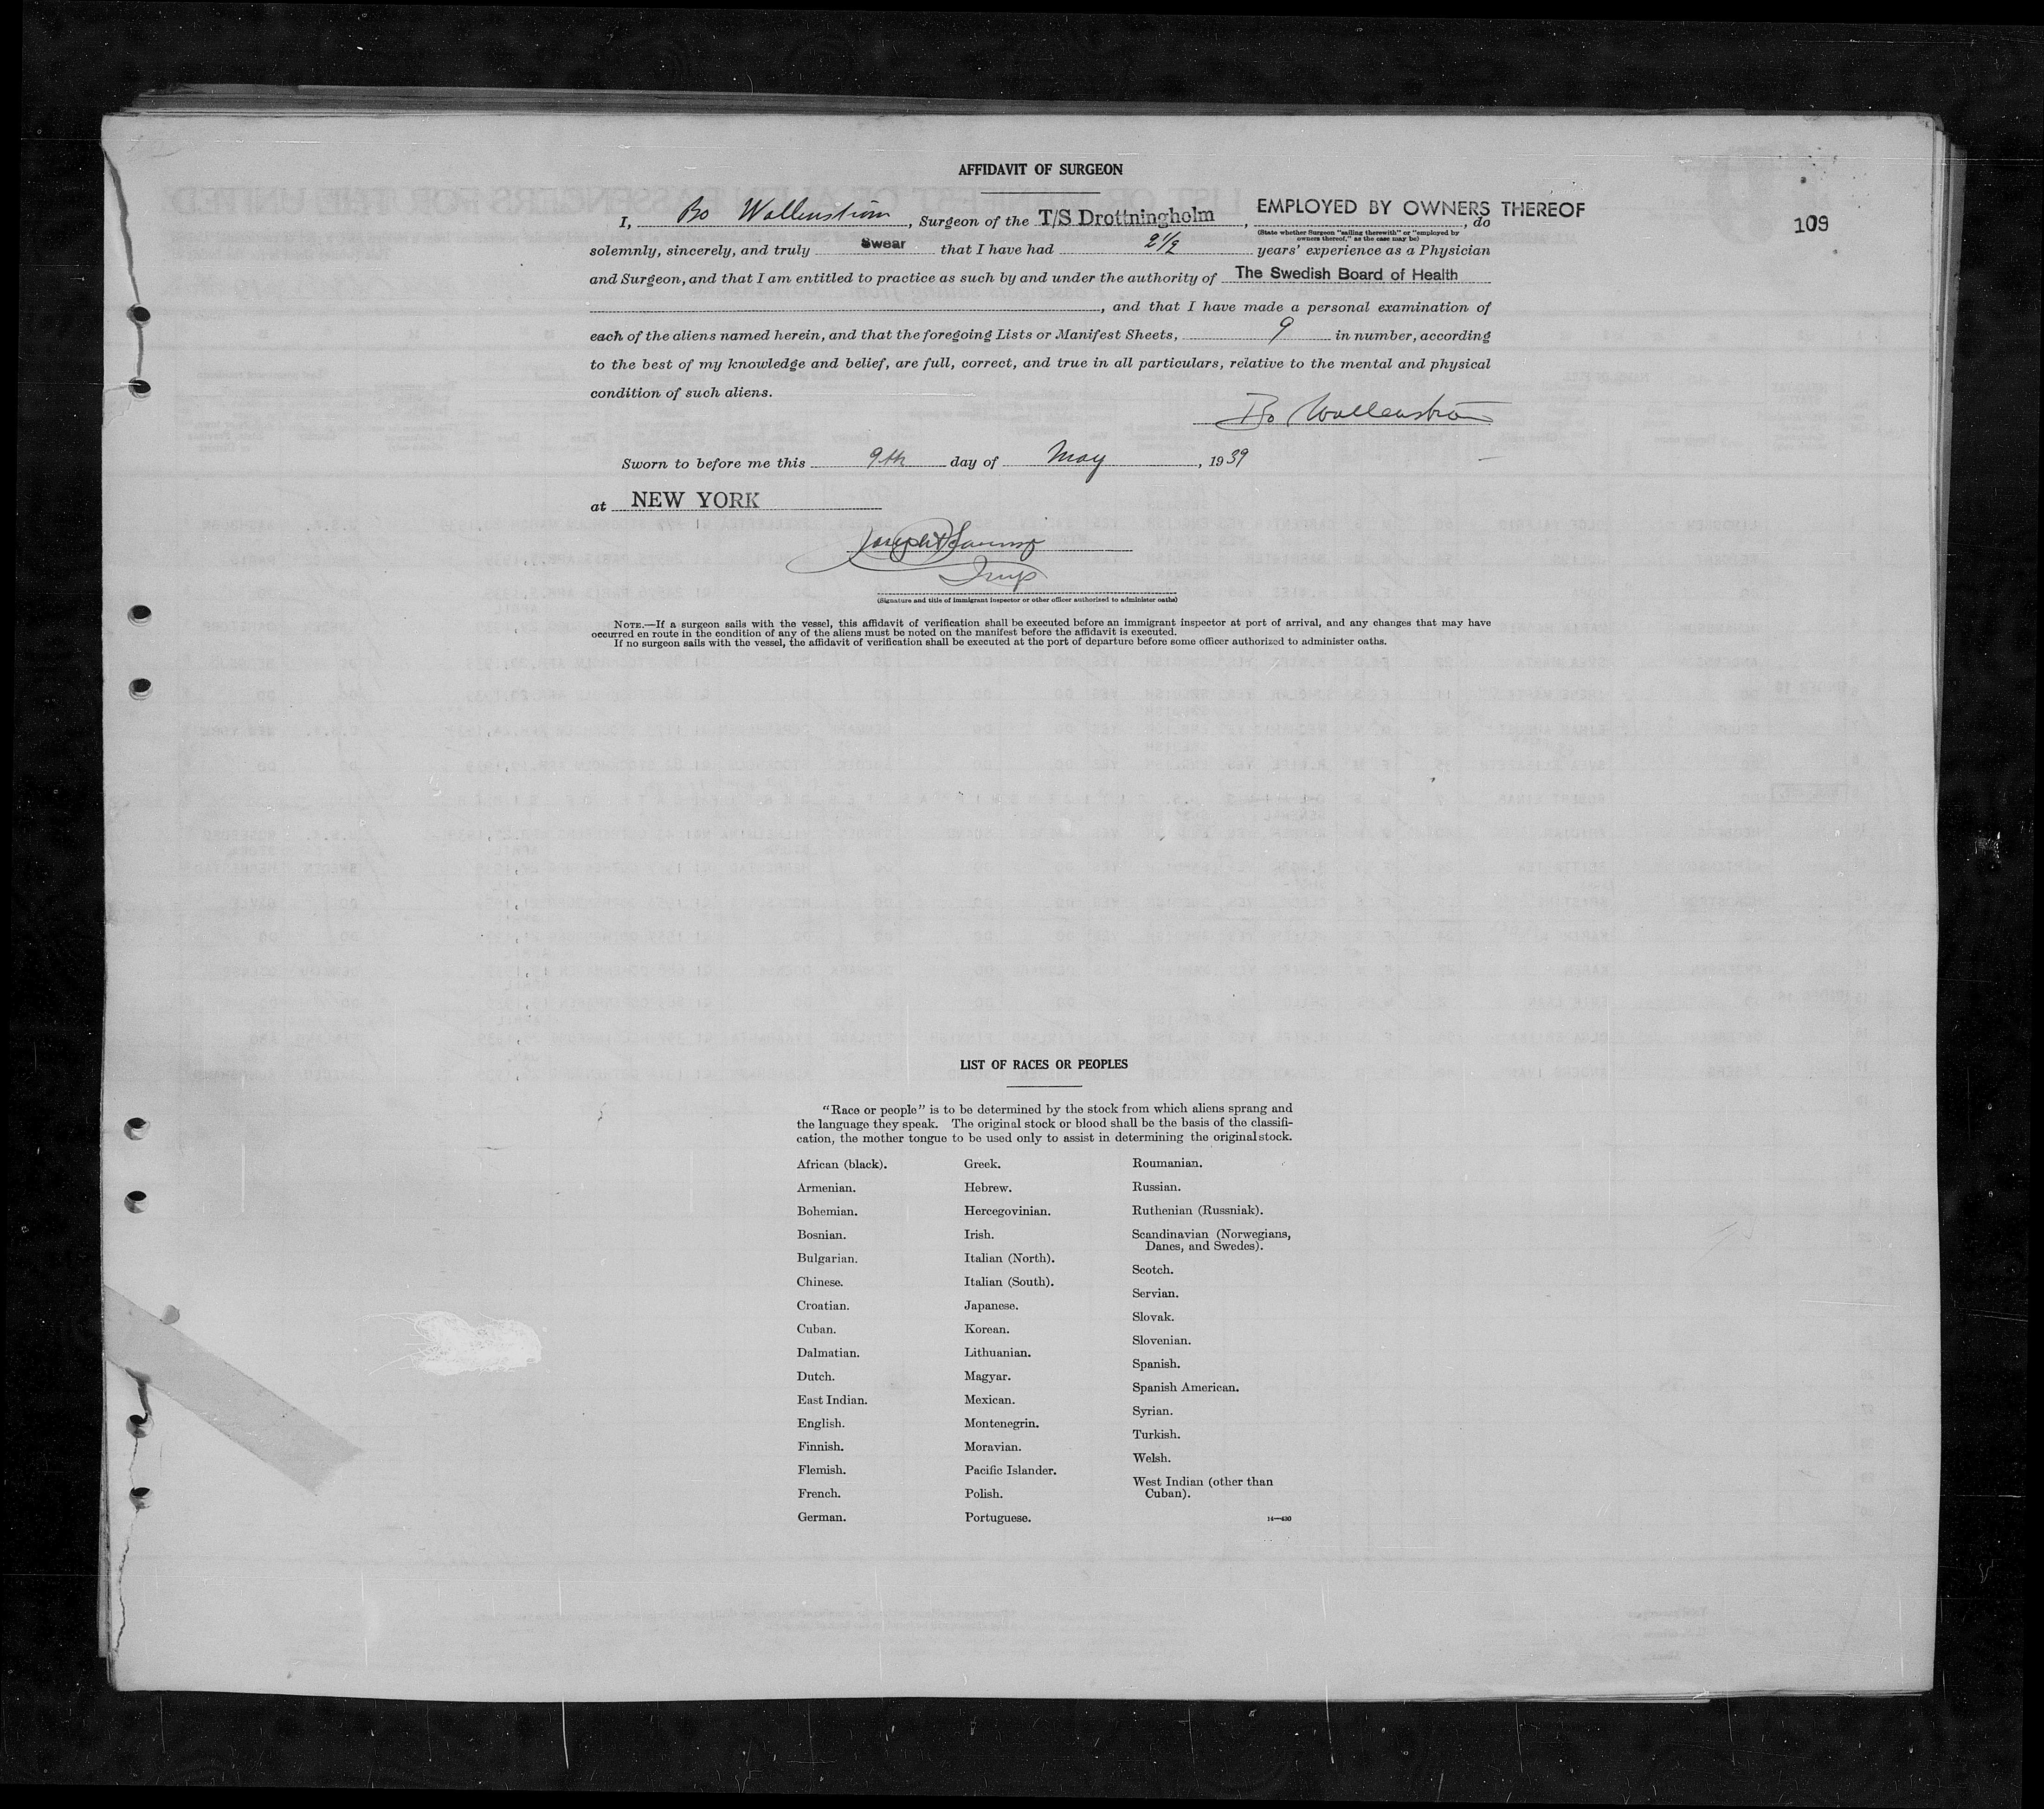 AFFIDAVIT OF SURGEON
109
I, Bo Wallenström, Surgeon of the T/S Drottningholm, EMPLOYED BY OWNERS THEREOF, do
(State whether Surgeon "sailing therewith" or "employed by
owners thereof," as the case may be)
solemnly, sincerely, and truly Swear that I have had 2½ years' experience as a Physician
and Surgeon, and that I am entitled to practice as such by and under the authority of The Swedish Board of Health
, and that I have made a personal examination of
each of the aliens named herein, and that the foregoing Lists or Manifest Sheets, 9 in number, according
to the best of my knowledge and belief, are full, correct, and true in all particulars, relative to the mental and physical
condition of such aliens.
Bo Wallenström
Sworn to before me this 9th day of May, 1939
at NEW YORK
Joseph
Insp
(Signature and title of immigrant inspector or other officer authorized to administer oaths)
NOTE.—If a surgeon sails with the vessel, this affidavit of verification shall be executed before an immigrant inspector at port of arrival, and any changes that may have
occurred en route in the condition of any of the aliens must be noted on the manifest before the affidavit is executed.
If no surgeon sails with the vessel, the affidavit of verification shall be executed at the port of departure before some officer authorized to administer oaths.
LIST OF RACES OR PEOPLES
"Race or people" is to be determined by the stock from which aliens sprang and
the language they speak. The original stock or blood shall be the basis of the classifi-
cation, the mother tongue to be used only to assist in determining the original stock.
African (black).
Armenian.
Bohemian.
Bosnian.
Bulgarian.
Chinese.
Croatian.
Cuban.
Dalmatian.
Dutch.
East Indian.
English.
Finnish.
Flemish.
French.
German.
Greek.
Hebrew.
Hercegovinian.
Irish.
Italian (North).
Italian (South).
Japanese.
Korean.
Lithuanian.
Magyar.
Mexican.
Montenegrin.
Moravian.
Pacific Islander.
Polish.
Portuguese.
Roumanian.
Russian.
Ruthenian (Russniak).
Scandinavian (Norwegians,
Danes, and Swedes).
Scotch.
Servian.
Slovak.
Slovenian.
Spanish.
Spanish American.
Syrian.
Turkish.
Welsh.
West Indian (other than
Cuban).
14—430